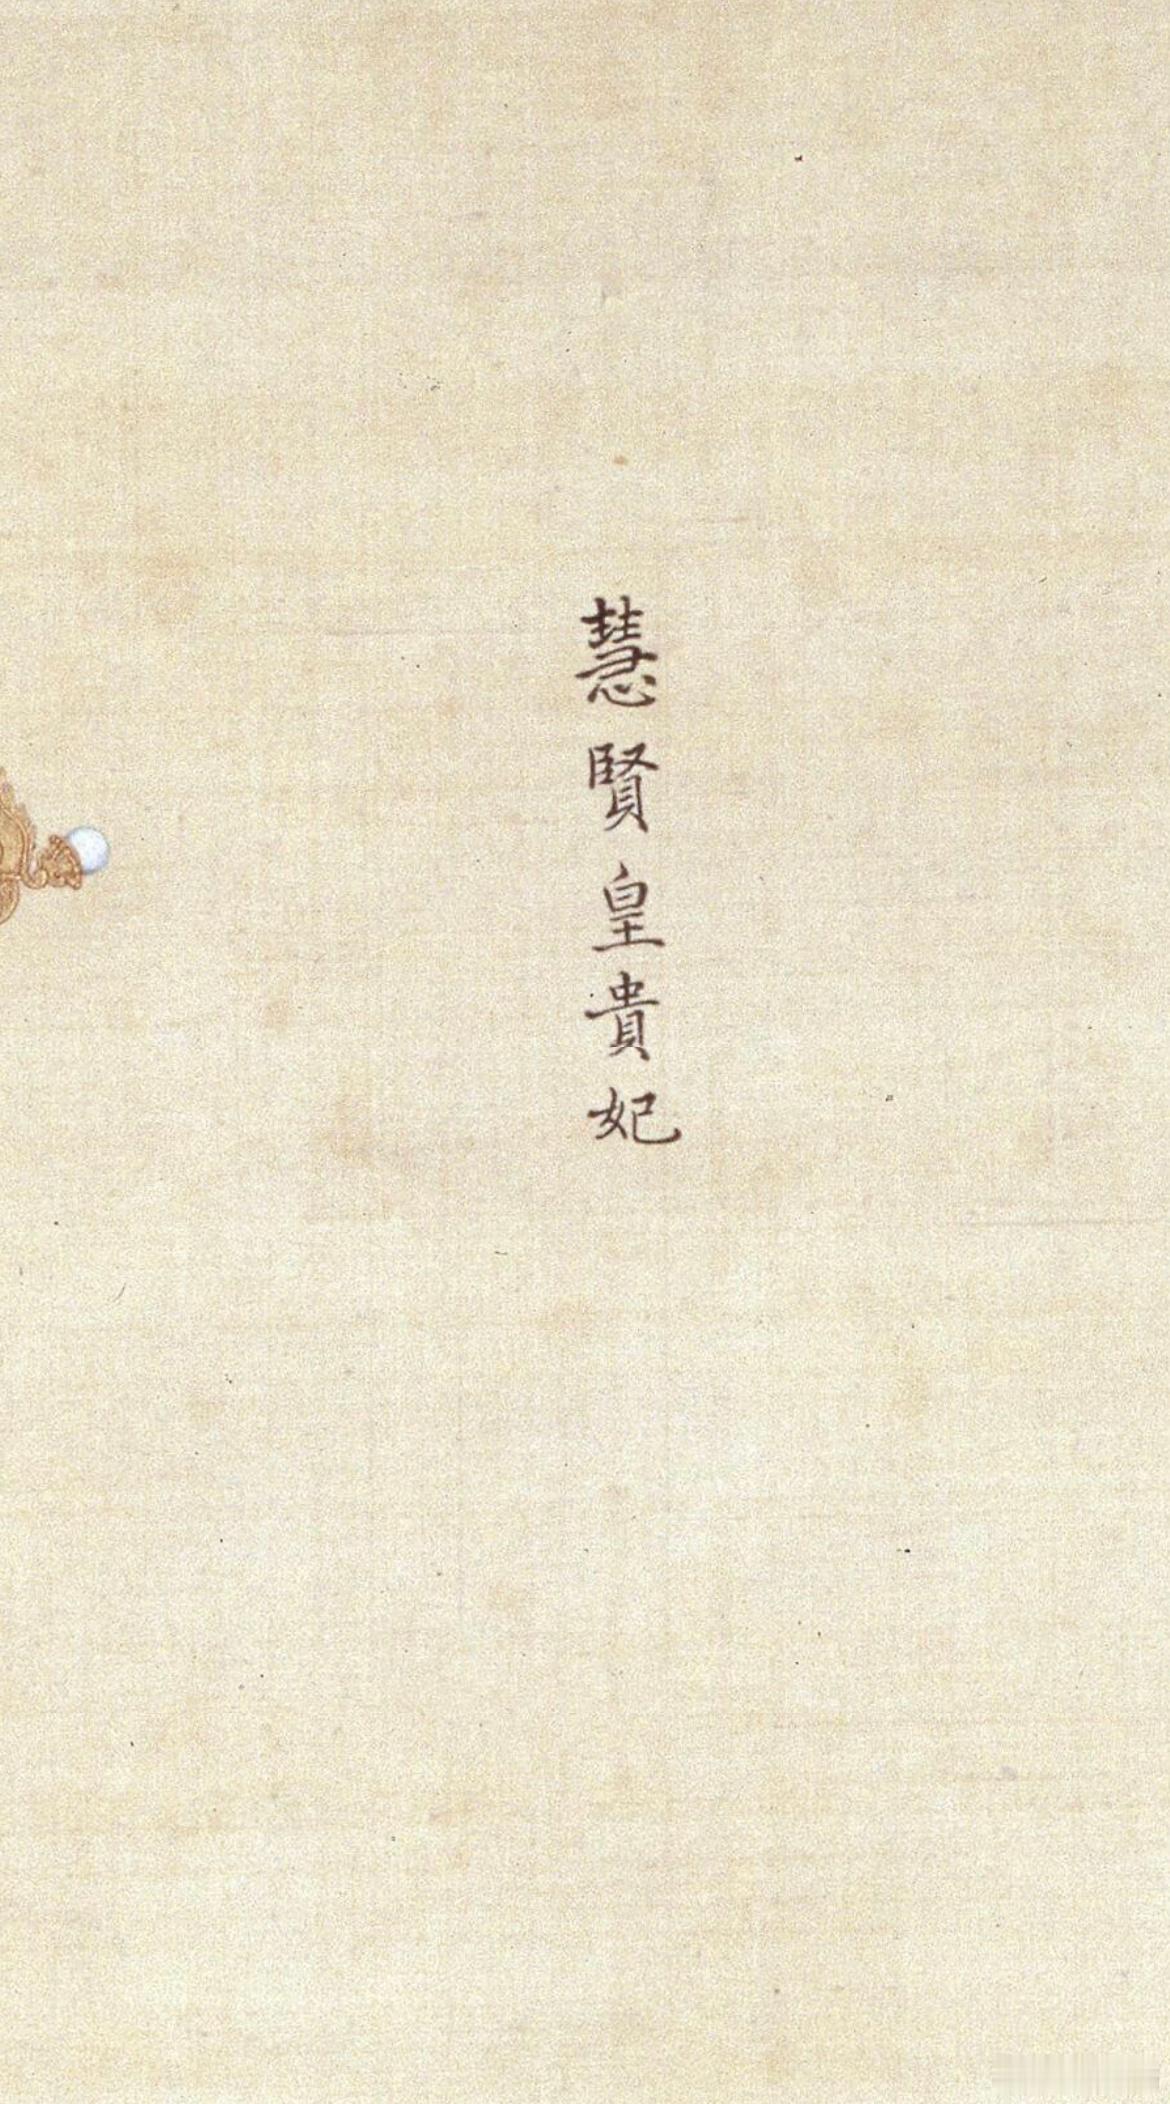 慧賢皇貴妃